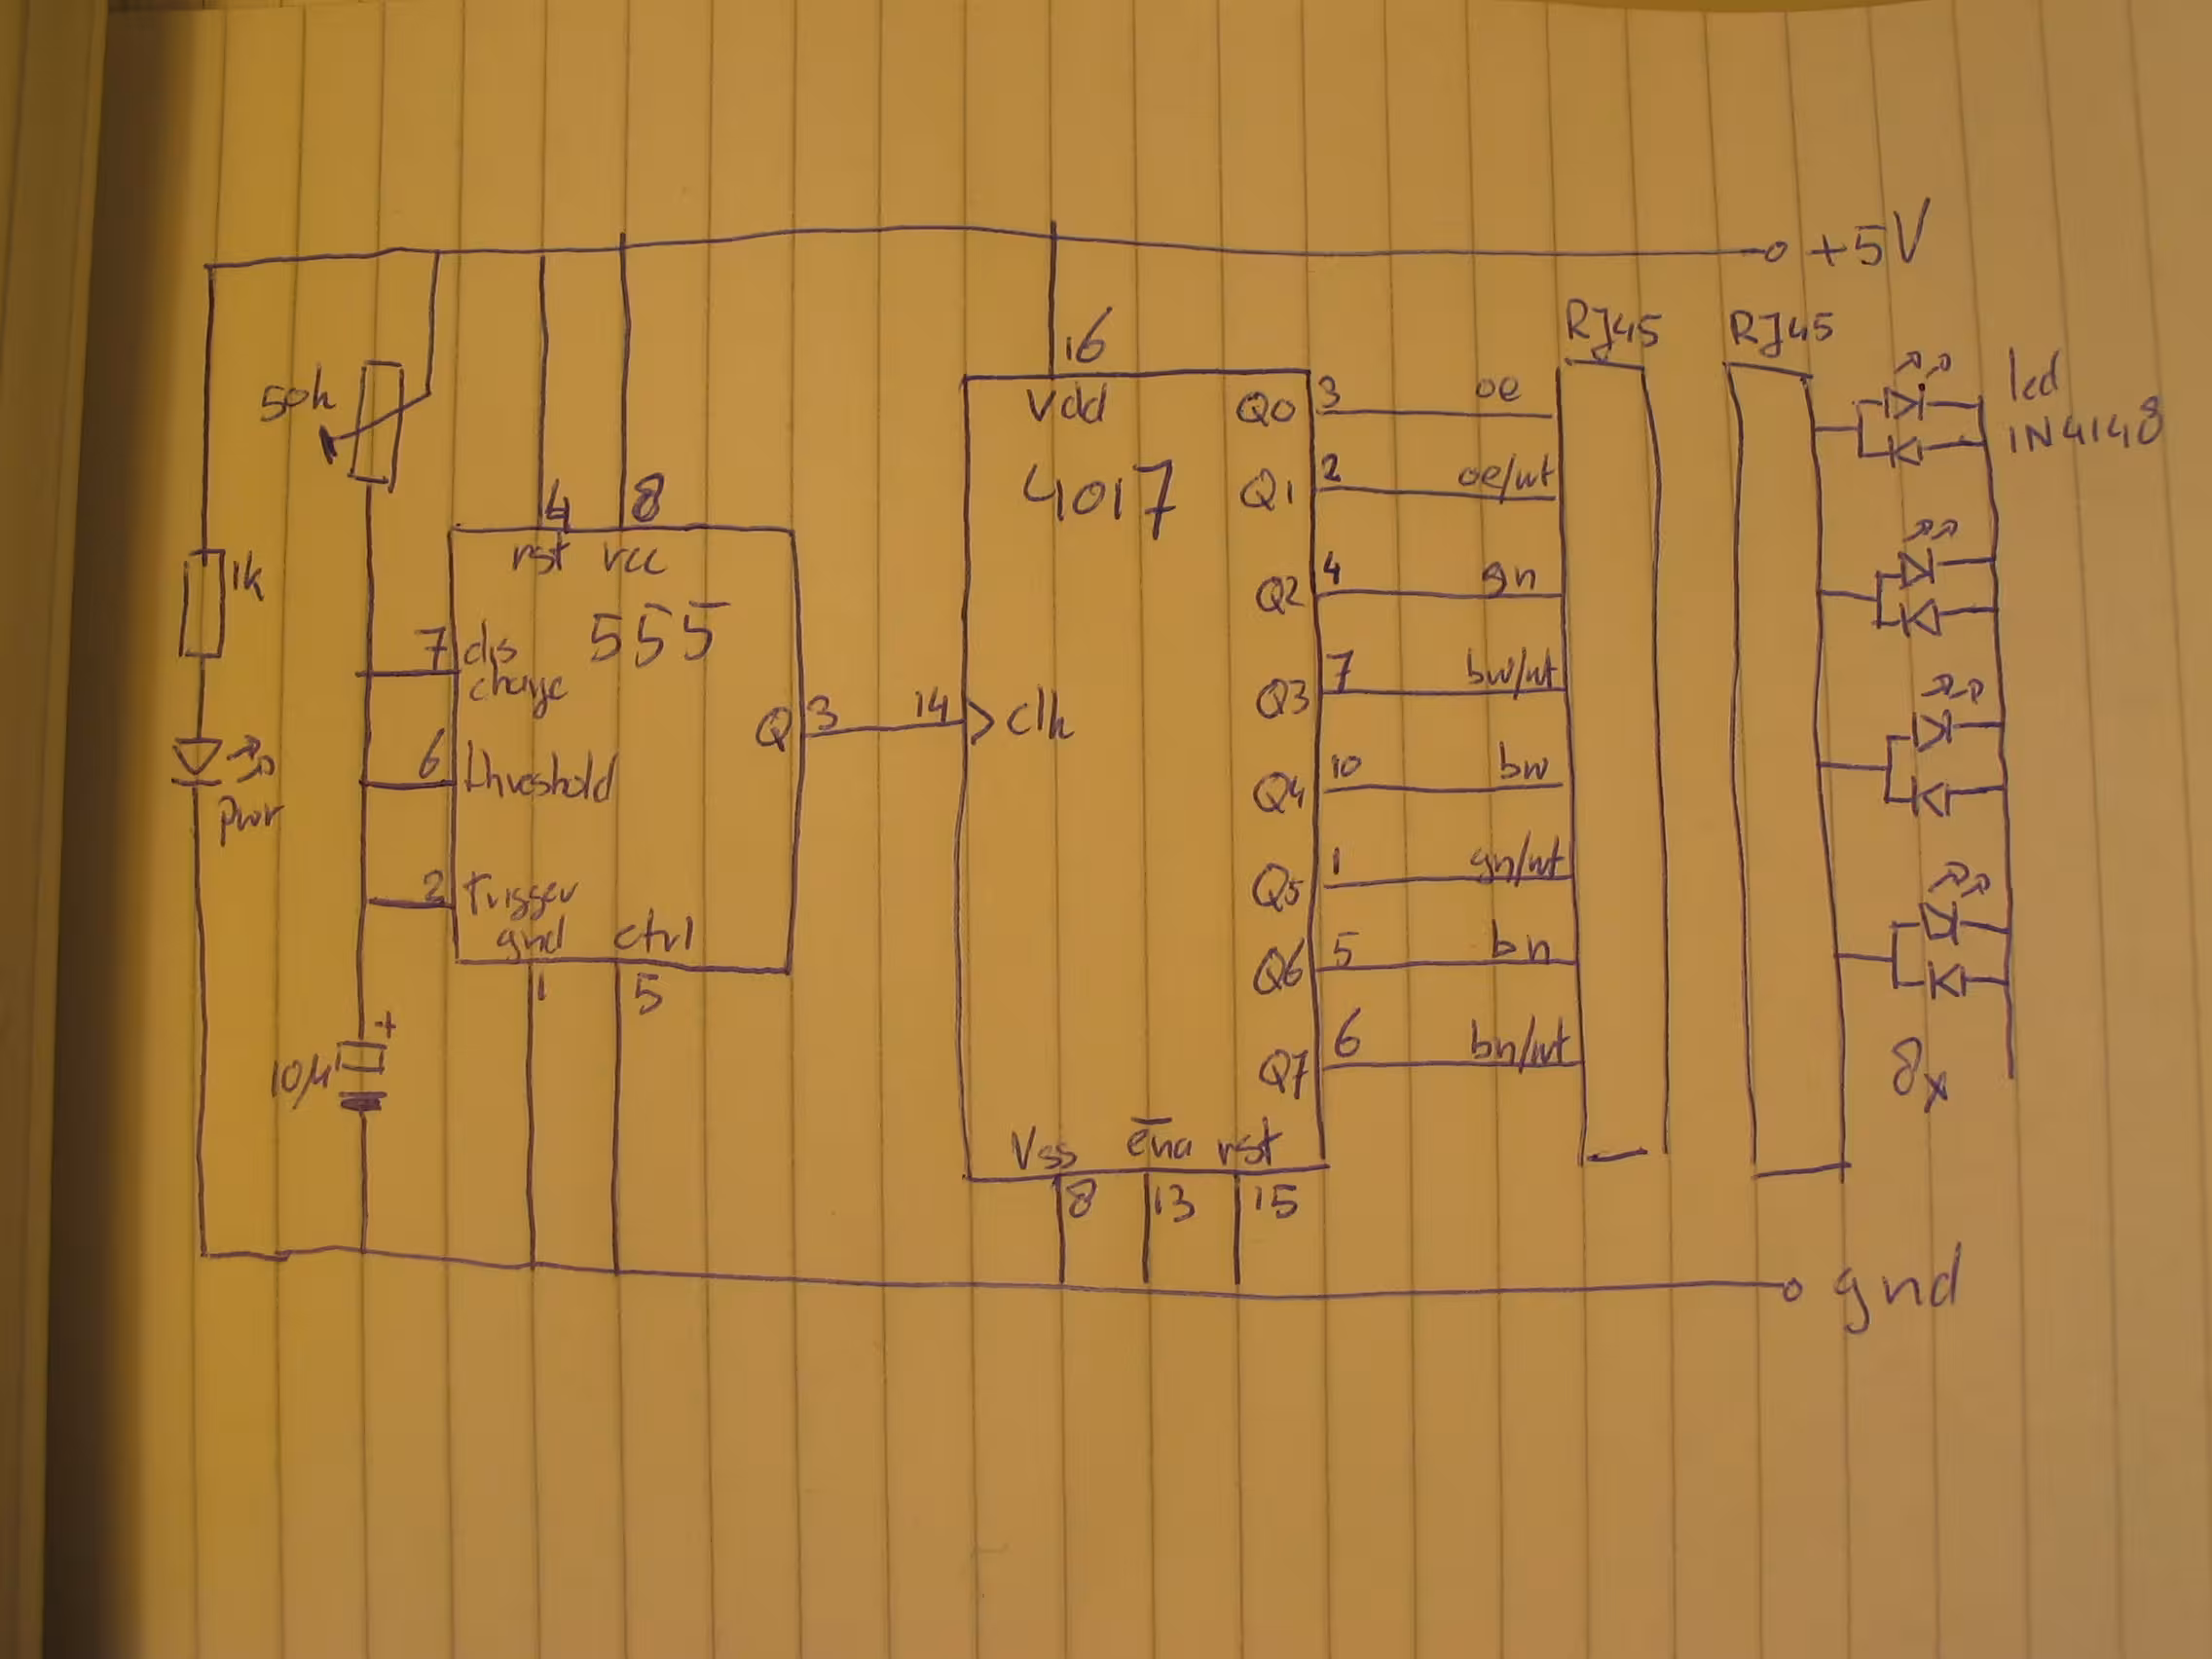 +5V
RJ45 RJ45
16
50k
led
1N4148
Vdd
Q0 3 oe
4017
Q1 2 oe/wt
4 8
rst vcc
1k
Q2 4 gn
555
7 dis
charge
Q3 7 bw/wt
Q 3 14 clk
6 threshold
Q4 10 bw
pwr
Q5 1 gn/wt
2 Trigger
gnd ctrl
Q6 5 bn
1 5
+
10µ
Q7 6 bn/wt
8x
Vss e̅n̅a̅ rst
8 13 15
gnd